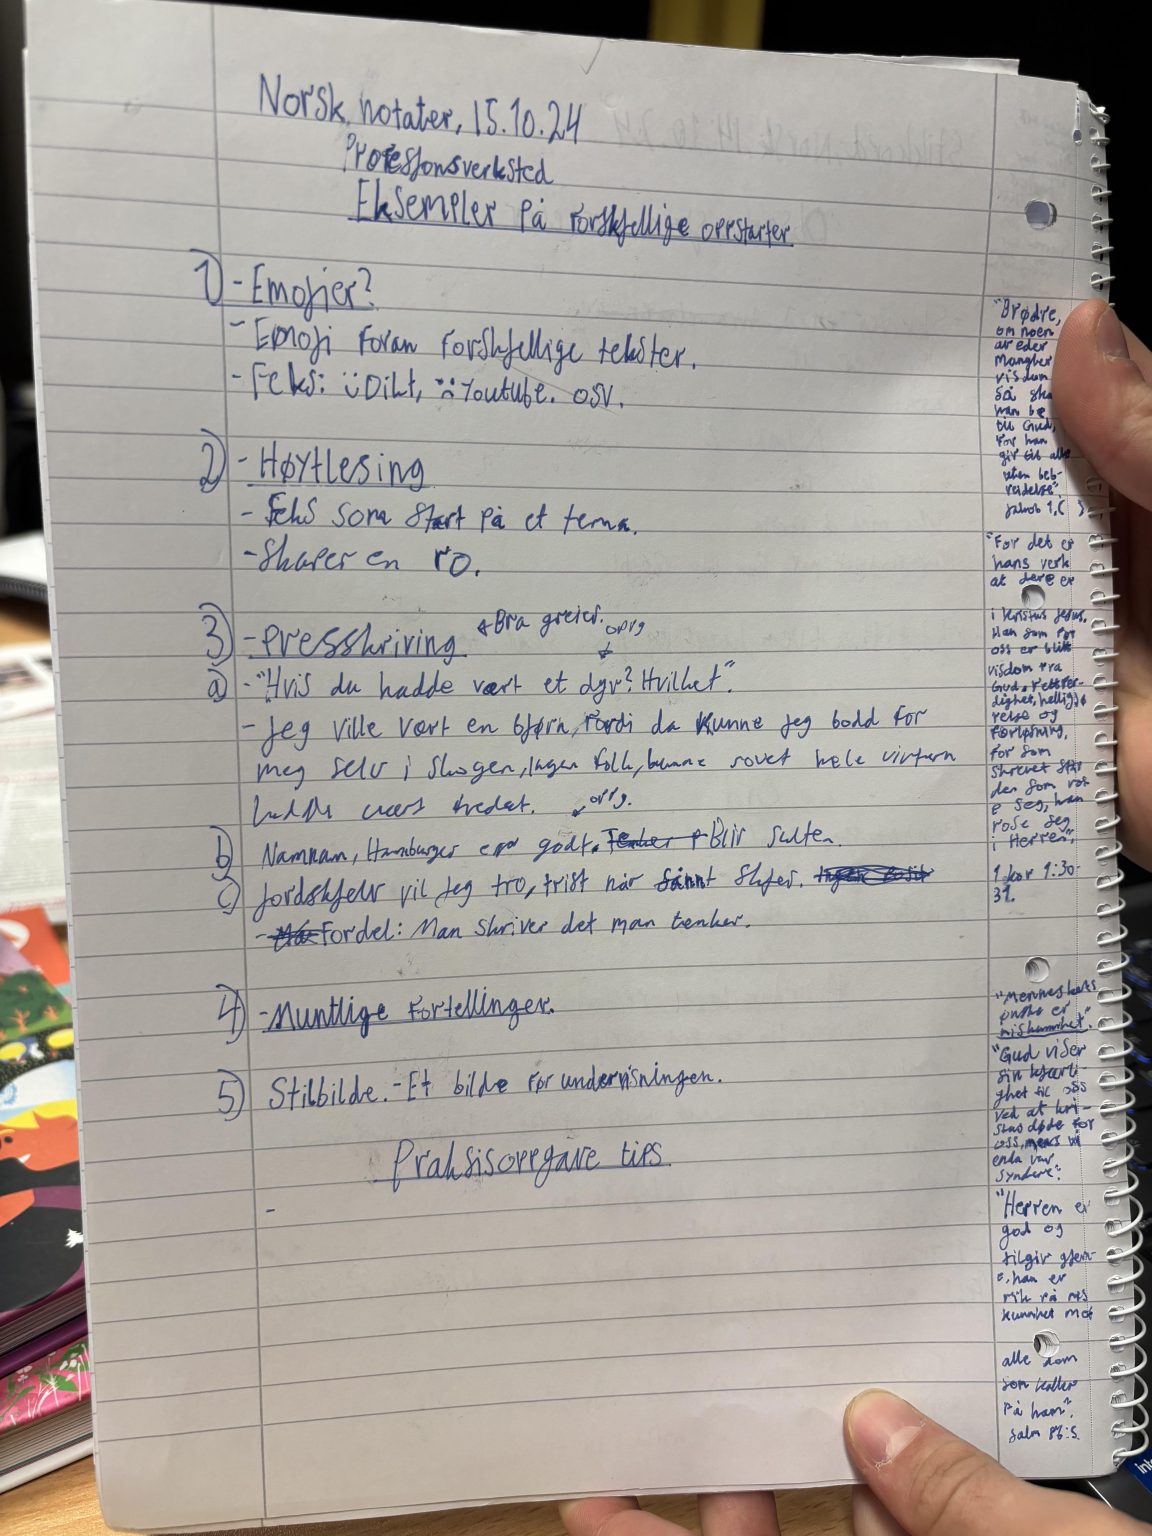 Norsk notater, 15.10.24
Profesjonsverksted
Eksempler på forskjellige oppstarter
1) - Emojier?
- Emoji foran forskjellige tekster.
- Feks: ü Dikt, Youtube. osv.
2) - Høytlesing
- Feks som start på et tema.
- Skaper en ro.
3) - Presskriving ← Bra greier.
oppg
a) - "Hvis du hadde vært et dyr? Hvilket".
- Jeg ville vært en bjørn, fordi da kunne jeg bodd for
meg selv i skogen, ingen folk, kunne sovet hele vintern
hadde vært fredet.
oppg.
b) Namnam, Hamburger er godt. Tenker Blir sulten.
c) Jordskjelv vil jeg tro, trist når sånnt skjer.
- Fordel: Man skriver det man tenker.
4) - Muntlige fortellinger.
5) Stilbilde. - Et bilde før undervisningen.
Praksisoppgave tips
-
"Brødre,
om noen
av eder
mangler
visdom
så
til Gud,
for han
gir til alle
uten beb-
reidelse".
Jakob 1,
"For det er
hans verk
at dere er
i Kristus Jesus,
Han som for
oss er blitt
visdom fra
Gud, rettfer-
dighet, helligg
relse og
forløsning,
for som
skrevet står
den som ros
e seg, han
rose seg
i Herren",
1 kor 1:30-
31.
"Menneskets
pryde er
miskunnhet".
"Gud viser
sin kjærli-
ghet til oss
ved at kri-
stus døde for
oss, mens vi
enda var
syndere".
"Herren er
god og
tilgir gjern-
e, han er
rik på mis
kunnhet mot
alle dem
som kaller
på ham".
Salm 86:5.